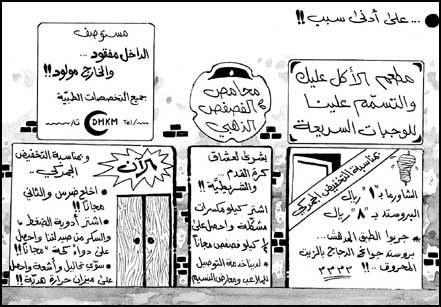 ... على أدنى سبب !!
مستوصف
الداخل مفقود ...
والخارج مولود !!
جميع التخصصات الطبية
ت/ DHKM Tel/
محامص
الفصفص
الذهبي
مطعم الأكل عليك
والتسمّم علينا
للوجبات السريعة
الآن
وبمناسبة التخفيض
الجمركي ..
• اخلع ضرس والثاني
مجاناً !!
• اشتر أدوية الضغط
والسكر من صيدلتنا واحصل
على دواء كحة "مجاناً" !!
• سوّي تحاليل وأشعة واحصل
على ميزان حرارة هدية !!
بشرى لعشاق
كرة القدم ..
والشريطية !!
اشتر كيلو مكسرات
مشكلات واحصل على
¼ كيلو فصفص مجاناً
• لدينا خدمة التوصيل
للملاعب ومعارض النسيم
بمناسبة التخفيض الجمركي
الشاورما بـ "١" ريال
البروستد بـ "٨" ريال
• جربوا الطبق المدهش ..
بروستد جوانح الدجاج بالزيت
المحروق .. !!
٣٣٣٣